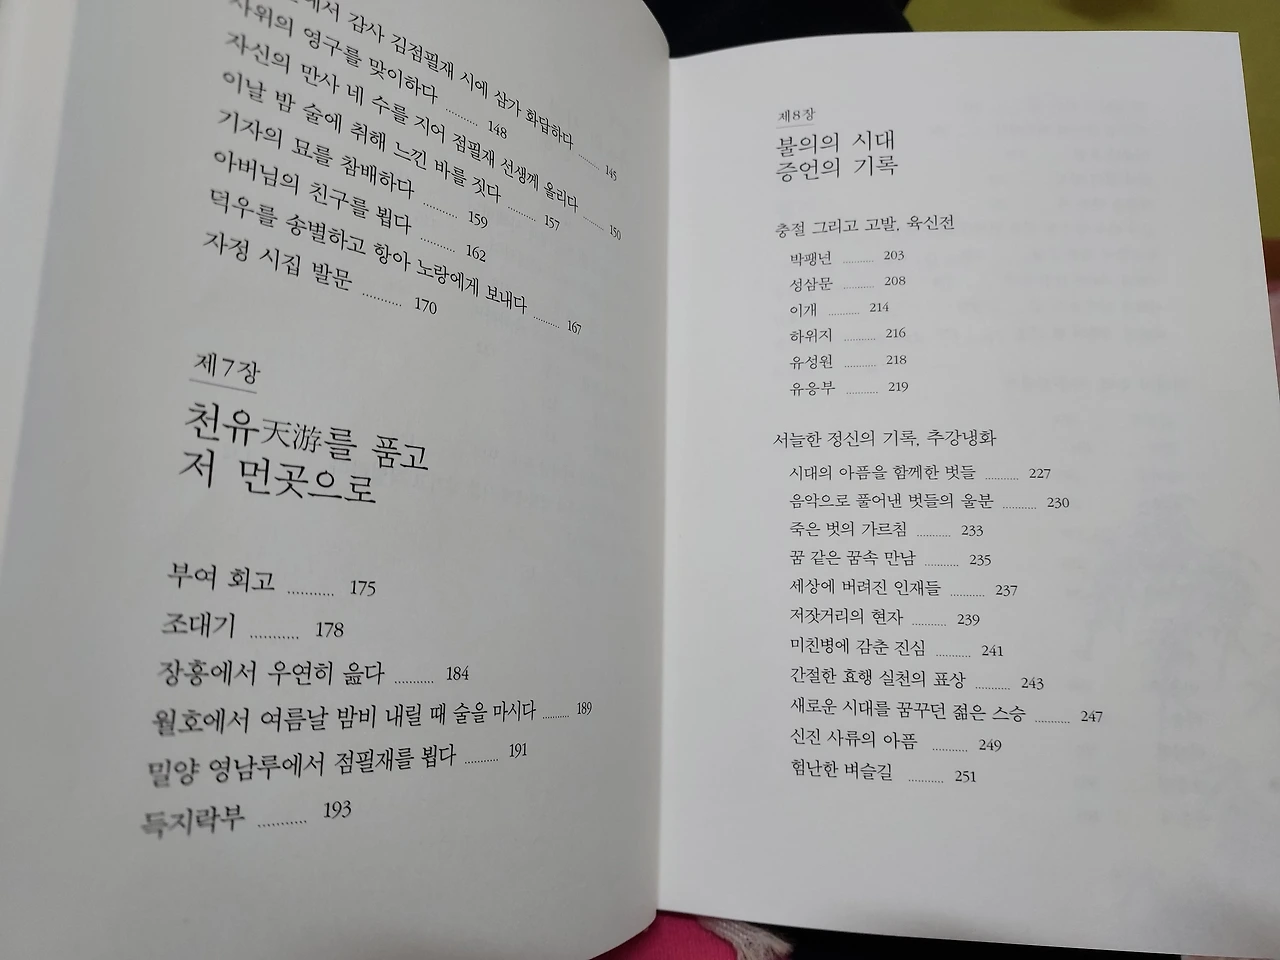 에서 감사 김점필재 시에 삼가 화답하다 ........ 145
사위의 영구를 맞이하다 ........ 148
자신의 만사 네 수를 지어 점필재 선생께 올리다 ........ 150
이날 밤 술에 취해 느낀 바를 짓다 ........ 157
기자의 묘를 참배하다 ........ 159
아버님의 친구를 뵙다 ........ 162
덕우를 송별하고 항아 노랑에게 보내다 ........ 167
자정 시집 발문 ........ 170
제7장
천유天游를 품고
저 먼곳으로
부여 회고 ........ 175
조대기 ........ 178
장흥에서 우연히 읊다 ........ 184
월호에서 여름날 밤비 내릴 때 술을 마시다 ........ 189
밀양 영남루에서 점필재를 뵙다 ........ 191
득지락부 ........ 193
제8장
불의의 시대
증언의 기록
충절 그리고 고발, 육신전
박팽년 ........ 203
성삼문 ........ 208
이개 ........ 214
하위지 ........ 216
유성원 ........ 218
유응부 ........ 219
서늘한 정신의 기록, 추강냉화
시대의 아픔을 함께한 벗들 ........ 227
음악으로 풀어낸 벗들의 울분 ........ 230
죽은 벗의 가르침 ........ 233
꿈 같은 꿈속 만남 ........ 235
세상에 버려진 인재들 ........ 237
저잣거리의 현자 ........ 239
미친병에 감춘 진심 ........ 241
간절한 효행 실천의 표상 ........ 243
새로운 시대를 꿈꾸던 젊은 스승 ........ 247
신진 사류의 아픔 ........ 249
험난한 벼슬길 ........ 251